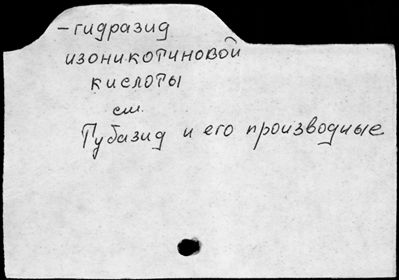 -гидразид
изоникотиновой
кислоты
см.
Тубазид и его производные